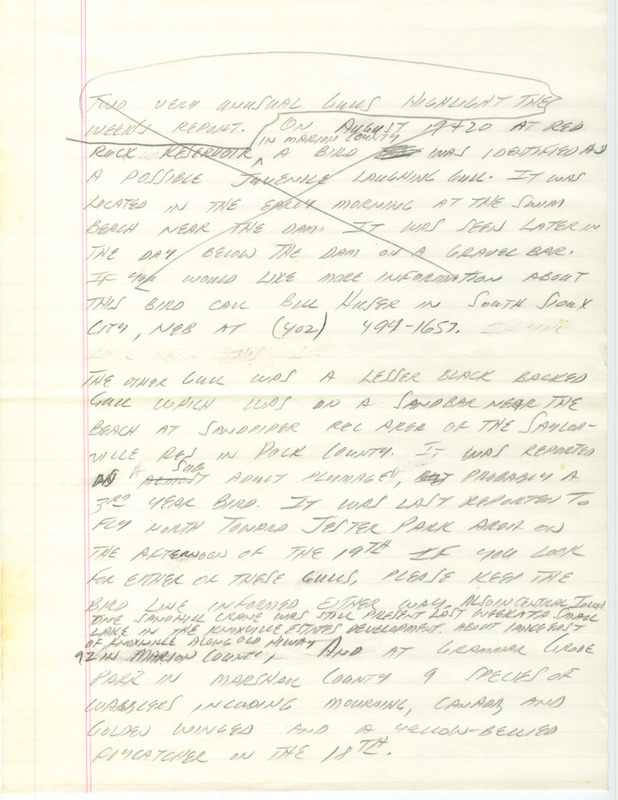 TWO VERY UNUSUAL GULLS HIGHLIGHT THE
WEEK'S REPORT. ON AUGUST 19+20 AT RED
IN MARION COUNTY
ROCK RESERVOIR A BIRD WAS IDENTIFIED AS
A POSSIBLE JUVENILE LAUGHING GULL. IT WAS
LOCATED IN THE EARLY MORNING AT THE SWIM
BEACH NEAR THE DAM. IT WAS SEEN LATER IN
THE DAY BELOW THE DAM ON A GRAVEL BAR.
IF YOU WOULD LIKE MORE INFORMATION ABOUT
THIS BIRD CALL BILL HUSER IN SOUTH SIOUX
CITY, NEB AT (402) 494-1657.
THE OTHER GULL WAS A LESSER BLACK BACKED
GULL WHICH WAS ON A SANDBAR NEAR THE
BEACH AT SANDPIPER REC AREA OF THE SAYLOR-
VILLE RES IN POLK COUNTY. IT WAS REPORTED
AS A SUB ADULT PLUMAGED, PROBABLY A
3RD YEAR BIRD. IT WAS LAST REPORTED TO
FLY NORTH TOWARD JESTER PARK AREA ON
THE AFTERNOON OF THE 19TH IF YOU LOOK
FOR EITHER OF THESE GULLS, PLEASE KEEP THE
BIRD LINE INFORMED EITHER WAY. ALSO IN CENTRAL IOWA
ONE SANDHILL CRANE WAS STILL PRESENT LAST WEEK AT A SMALL
LAKE IN THE KNOXVILLE ESTATES DEVELOPMENT. ABOUT 1 MILE EAST
OF KNOXVILLE ALONG OLD HIWAY
92 IN MARION COUNTY, AND AT GRAMMER GROVE
PARK IN MARSHALL COUNTY 9 SPECIES OF
WARBLERS INCLUDING MOURNING, CANADA, AND
GOLDEN WINGED AND A YELLOW-BELLIED
FLYCATCHER ON THE 18TH.